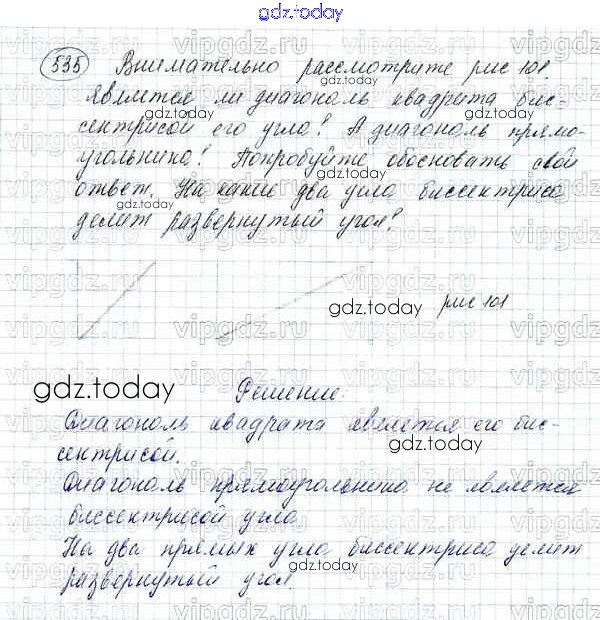 gdz.today
535 Внимательно рассмотрите рис 101.
Является ли диагональ квадрата бис-
сектрисой его угла? А диагональ прямо-
угольника? Попробуйте обосновать свой
ответ. На какие два угла биссектриса
делит развернутый угол?
gdz.today рис 101
gdz.today Решение:
Диагональ квадрата является его бис-
сектрисой.
Диагональ прямоугольника не является
биссектрисой угла
На два прямых угла биссектриса делит
развернутый угол.